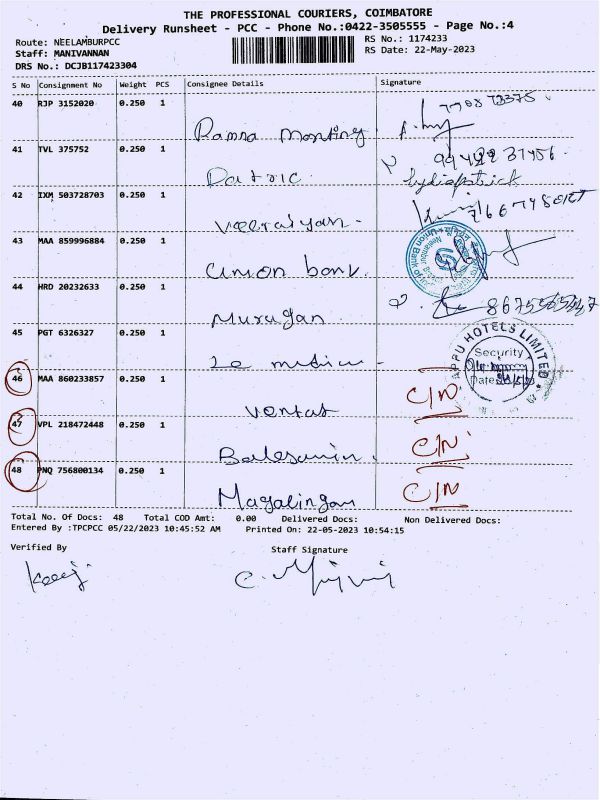 THE PROFESSIONAL COURIERS, COIMBATORE
Delivery Runsheet - PCC - Phone No.:0422-3505555 - Page No.:4
Route: NEELAMBURPCC RS No.: 1174233
Staff: MANIVANNAN RS Date: 22-May-2023
DRS No.: DCJB117423304
S No Consignment No Weight PCS Consignee Details Signature
40 RJP 3152020 0.250 1
Ramna Monting
41 TVL 375752 0.250 1
Patric.
42 IXM 503728703 0.250 1
Veeraiyan.
43 MAA 859996884 0.250 1
Union bank.
44 HRD 20232633 0.250 1
Murugan
45 PGT 6326327 0.250 1
Le
APPU HOTELS LIMITED
Security
Date
46 MAA 860233857 0.250 1 C/N
47 VPL 218472448 0.250 1 C/N
48 PNQ 756800134 0.250 1 C/N
Magalingam
Total No. Of Docs: 48 Total COD Amt: 0.00 Delivered Docs: Non Delivered Docs:
Entered By :TPCPCC 05/22/2023 10:45:52 AM Printed On: 22-05-2023 10:54:15
Verified By Staff Signature